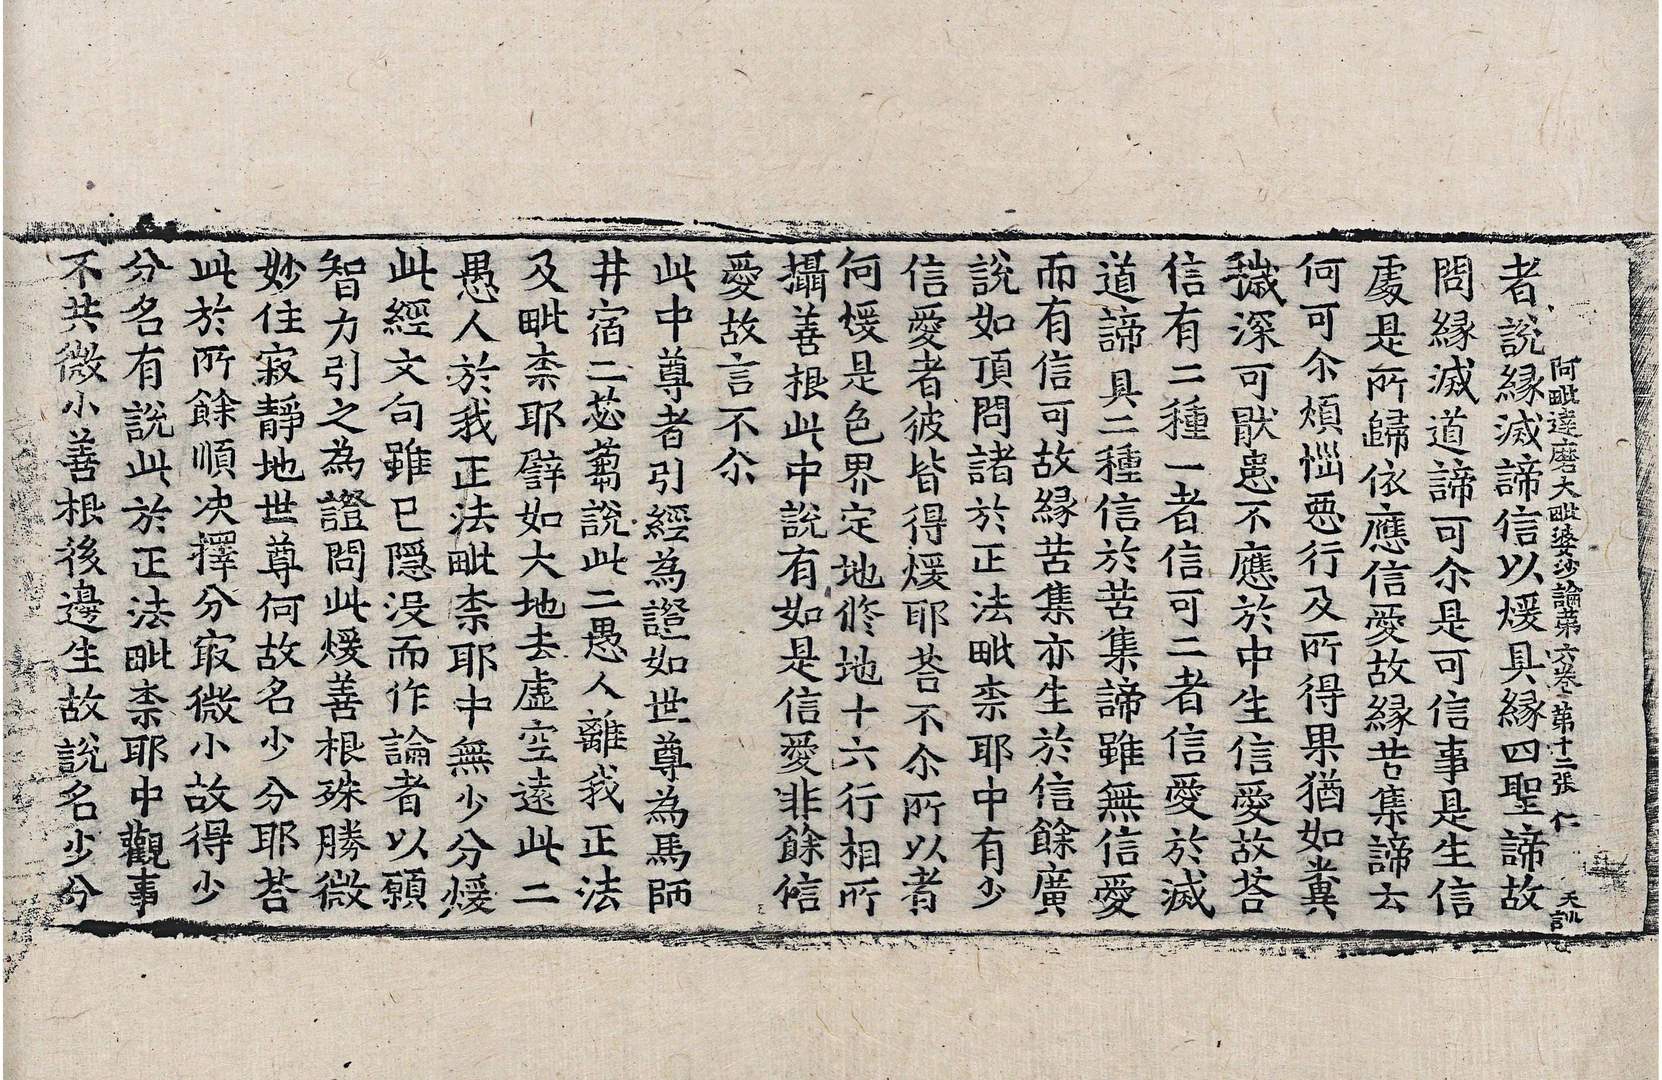 阿毗達磨大毗婆沙論第六卷第十二張 仁 天訓
者說緣滅諦信以煖具緣四聖諦故
問緣滅道諦可尒是可信事是生信
處是所歸依應信愛故緣苦集諦云
何可尒煩惱惡行及所得果猶如糞
穢深可猒患不應於中生信愛故荅
信有二種一者信可二者信愛於滅
道諦具二種信於苦集諦雖無信愛
而有信可故緣苦集亦生於信餘廣
說如頂問諸於正法毗柰耶中有少
信愛者彼皆得煖耶荅不尒所以者
何煖是色界定地修地十六行相所
攝善根此中說有如是信愛非餘信
愛故言不尒
此中尊者引經為證如世尊為馬師
井宿二苾蒭說此二愚人離我正法
及毗柰耶譬如大地去虛空遠此二
愚人於我正法毗柰耶中無少分煖
此經文句雖已隱沒而作論者以願
智力引之為證問此煖善根殊勝微
妙住寂靜地世尊何故名少分耶荅
此於所餘順决擇分㝡微小故得少
分名有說此於正法毗柰耶中觀事
不共微小善根後邊生故說名少分